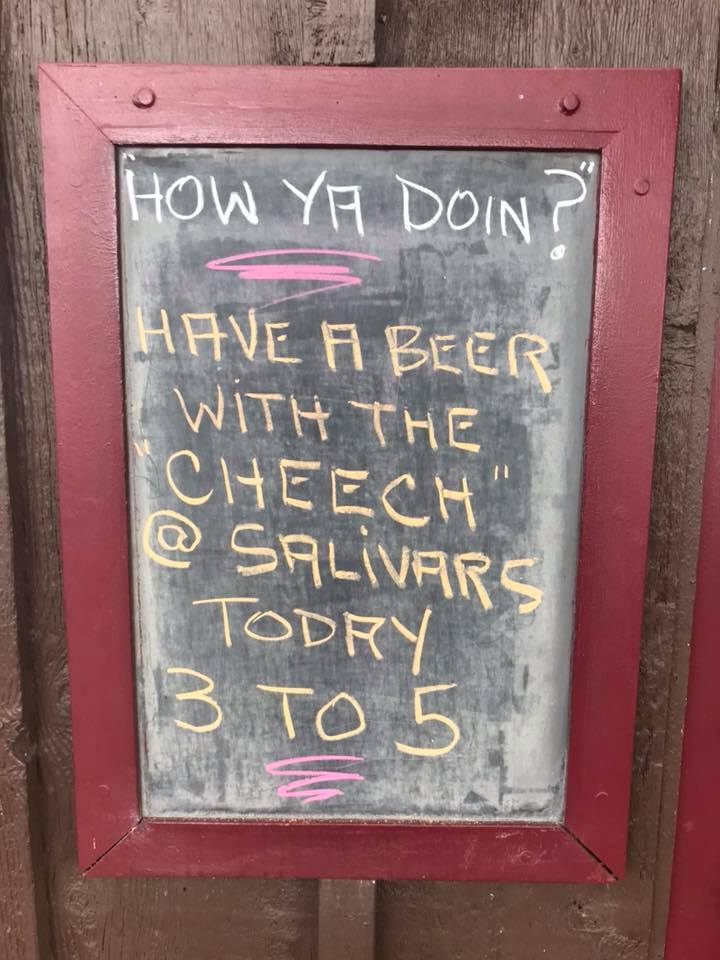 "HOW YA DOIN?"
HAVE A BEER
WITH THE
"CHEECH"
@ SALIVARS
TODAY
3 TO 5